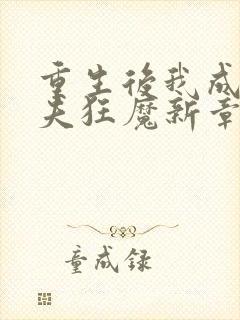 重生后我成
夫狂魔新章
童成録